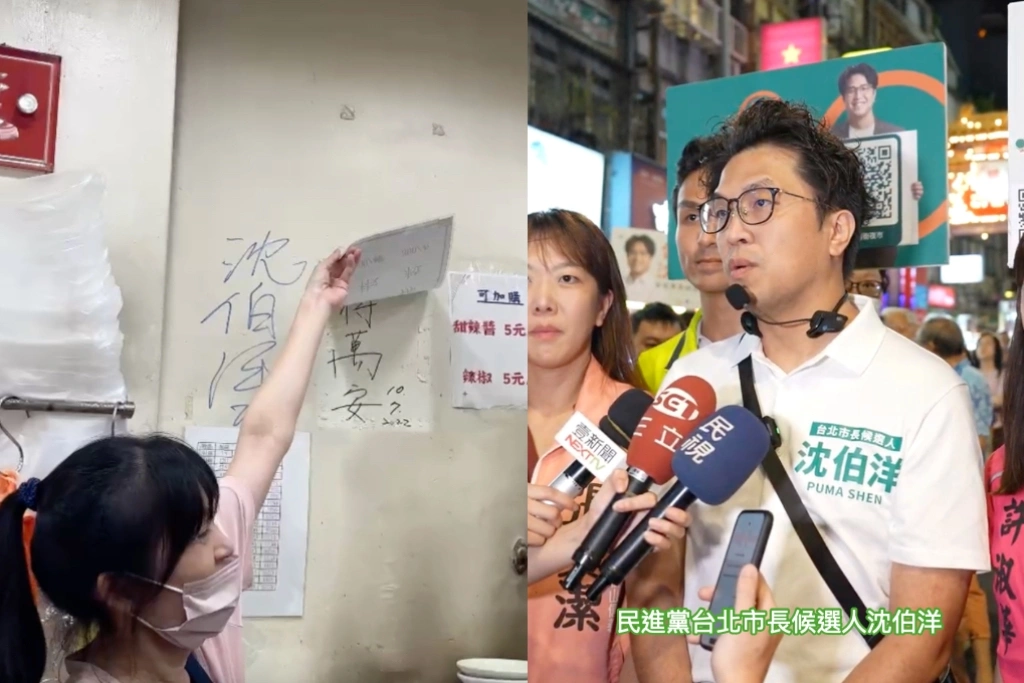 沈
伯
洋
萬
安
10
7
2022
可加購
甜辣醬 5元
辣椒 5元
壹新聞
NEXTTV
SET
三立
民視
台北市長候選人
沈伯洋
PUMA SHEN
潔
許淑華
民進黨台北市長候選人沈伯洋